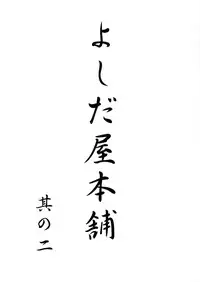 よしだ屋本舗
其の二